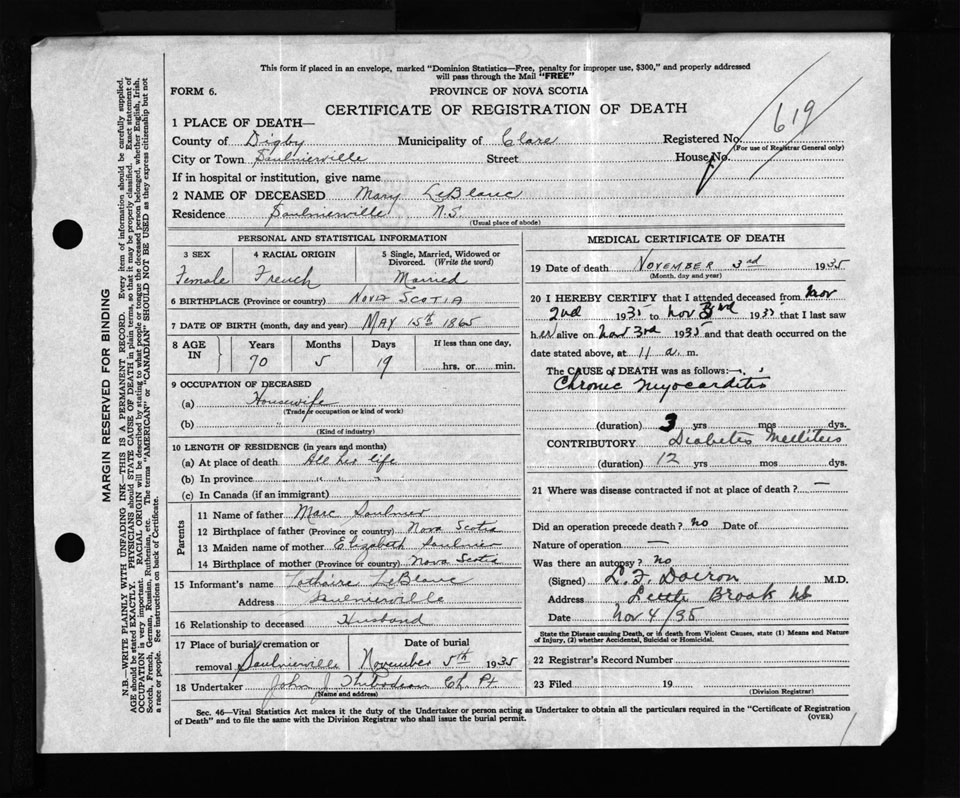 This form if placed in an envelope, marked "Dominion Statistics—Free, penalty for improper use, $300," and properly addressed
will pass through the Mail "FREE"
FORM 6.
PROVINCE OF NOVA SCOTIA
CERTIFICATE OF REGISTRATION OF DEATH
619
1 PLACE OF DEATH—
County of Digby Municipality of Clare Registered No.
(For use of Registrar General only)
City or Town Saulnierville Street House No.
If in hospital or institution, give name
2 NAME OF DECEASED Mary LeBlanc
Residence Saulnierville N.S.
(Usual place of abode)
PERSONAL AND STATISTICAL INFORMATION
3 SEX 4 RACIAL ORIGIN 5 Single, Married, Widowed or
Divorced. (Write the word)
Female French Married
6 BIRTHPLACE (Province or country) NOVA SCOTIA
7 DATE OF BIRTH (month, day and year) MAY 15th 1865
8 AGE IN Years Months Days If less than one day,
70 5 19 hrs. or min.
9 OCCUPATION OF DECEASED
(a) Housewife
(Trade or occupation or kind of work)
(b)
(Kind of industry)
10 LENGTH OF RESIDENCE (in years and months)
(a) At place of death All her life
(b) In province " " "
(c) In Canada (if an immigrant)
Parents
11 Name of father Marc Saulnier
12 Birthplace of father (Province or country) Nova Scotia
13 Maiden name of mother Elizabeth Saulnier
14 Birthplace of mother (Province or country) Nova Scotia
15 Informant's name Lothaire LeBlanc
Address Saulnierville
16 Relationship to deceased Husband
17 Place of burial, cremation or Date of burial
removal Saulnierville November 5th 1935
18 Undertaker John J. Thibodeau Ch. Pt
(Name and address)
MEDICAL CERTIFICATE OF DEATH
19 Date of death NOVEMBER 3rd 1935
(Month, day and year)
20 I HEREBY CERTIFY that I attended deceased from Nov
2nd 1935 to Nov 3rd 1935 that I last saw
her alive on Nov 3rd 1935 and that death occurred on
date stated above, at 11 a. m.
The CAUSE of DEATH was as follows:—
Chronic Myocarditis
(duration) 3 yrs mos dys.
CONTRIBUTORY Diabetes Mellitus
(duration) 12 yrs mos dys.
21 Where was disease contracted if not at place of death? —
Did an operation precede death? no Date of
Nature of operation —
Was there an autopsy? no
(Signed) L. F. Doiron M.D.
Address Little Brook NS
Date Nov 4/35
State the Disease causing Death, or in death from Violent Causes, state (1) Means and Nature
of Injury, (2) whether Accidental, Suicidal or Homicidal.
22 Registrar's Record Number
23 Filed 19
(Division Registrar)
Sec. 46—Vital Statistics Act makes it the duty of the Undertaker or person acting as Undertaker to obtain all the particulars required in the "Certificate of Registration
of Death" and to file the same with the Division Registrar who shall issue the burial permit.
(OVER)
MARGIN RESERVED FOR BINDING
N.B.—WRITE PLAINLY WITH UNFADING INK—THIS IS A PERMANENT RECORD. Every item of information should be carefully supplied.
AGE should be stated EXACTLY. PHYSICIANS should STATE CAUSE OF DEATH in plain terms, so that it may be properly classified. Exact statement of
OCCUPATION is very important. RACIAL ORIGIN will be described by stating to what people or tongue the deceased person belonged, whether English, Irish,
Scotch, French, German, Russian, Ruthenian, etc. The terms "AMERICAN" or "CANADIAN" SHOULD NOT BE USED as they express citizenship but not
a race or people. See instructions on back of Certificate.